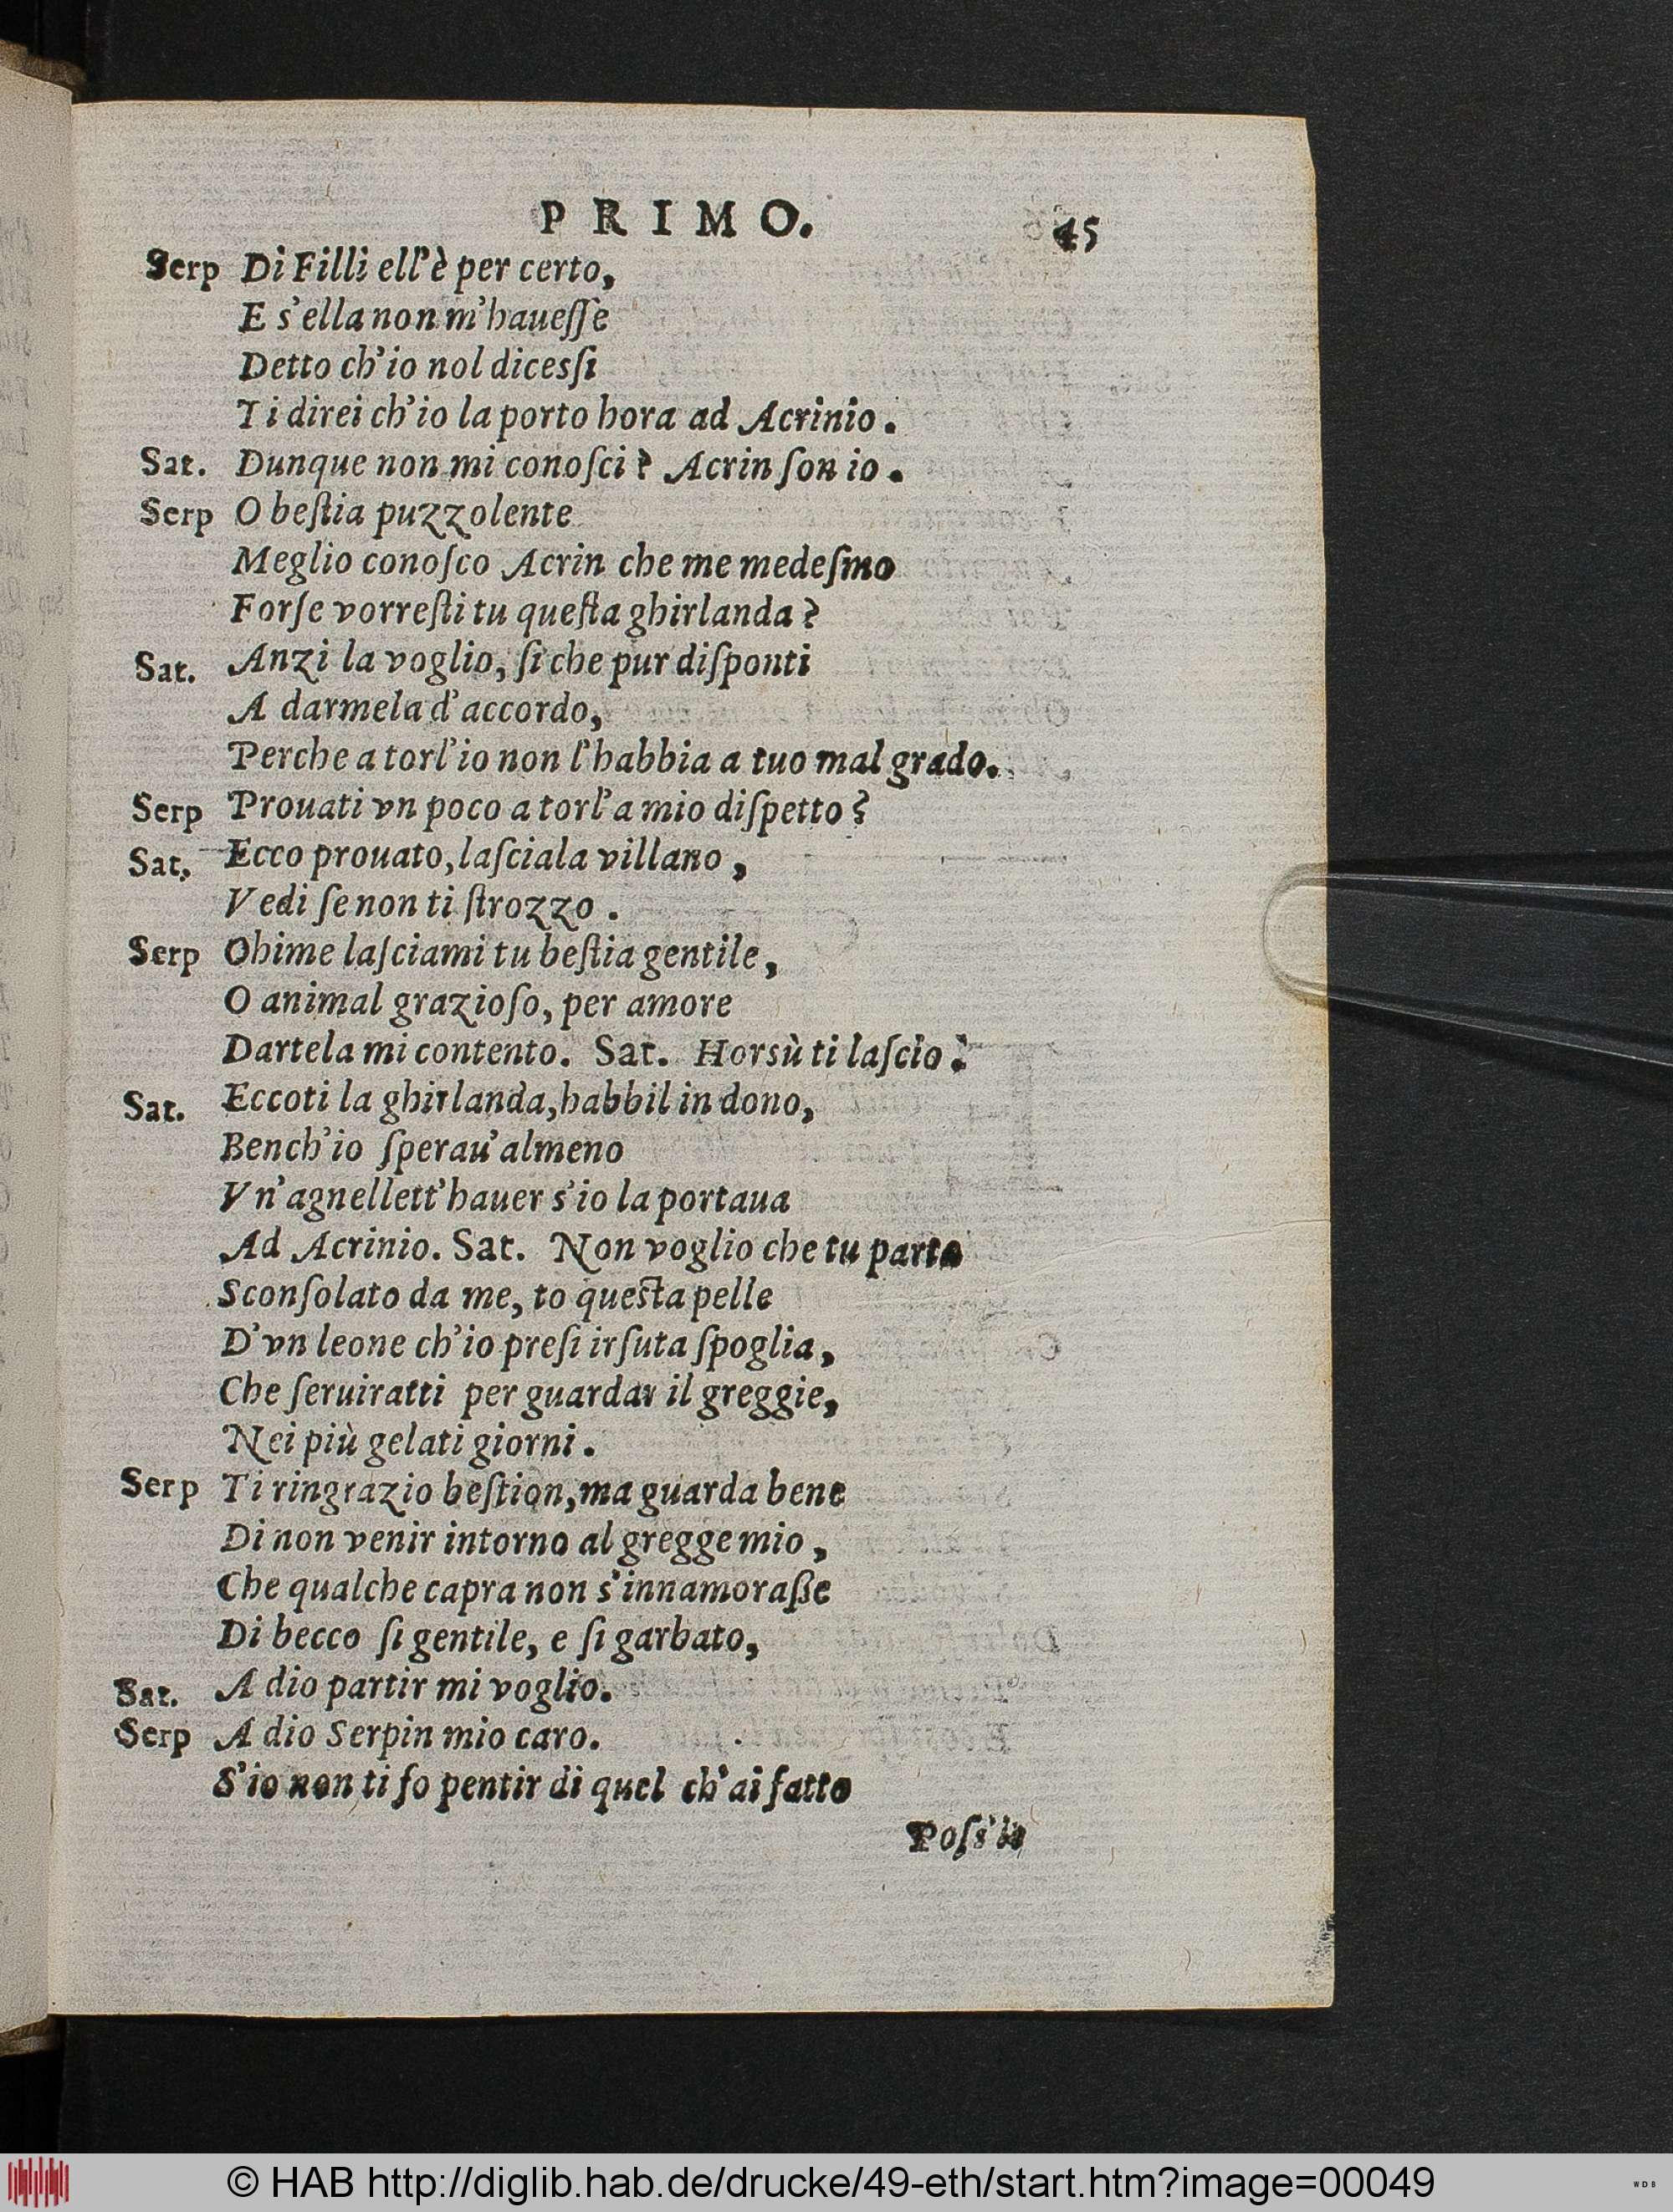 PRIMO. 45
Serp Di Filli ell'è per certo,
E s'ella non m'haueſſe
Detto ch'io nol dicesſi
Ti direi ch'io la porto hora ad Acrinio.
Sat. Dunque non mi conoſci? Acrin ſon io.
Serp O beſtia puzzolente
Meglio conoſco Acrin che me medeſmo
Forſe vorreſti tu queſta ghirlanda?
Sat. Anzi la voglio, ſi che pur diſponti
A darmela d'accordo,
Perche a torl'io non l'habbia a tuo mal grado.
Serp Prouati vn poco a torl'a mio diſpetto?
Sat. Ecco prouato, laſciala villano,
Vedi ſe non ti ſtrozzo.
Serp Ohime laſciami tu beſtia gentile,
O animal grazioſo, per amore
Dartela mi contento. Sat. Horsù ti laſcio?
Sat. Eccoti la ghirlanda, habbil in dono,
Bench'io ſperau'almeno
Vn'agnellett'hauer s'io la portaua
Ad Acrinio. Sat. Non voglio che tu parta
Sconſolato da me, to queſta pelle
D'vn leone ch'io preſi irſuta ſpoglia,
Che ſeruiratti per guardar il greggie,
Nei più gelati giorni.
Serp Ti ringrazio beſtion, ma guarda bene
Di non venir intorno al gregge mio,
Che qualche capra non s'innamoraße
Di becco ſi gentile, e ſi garbato,
Sat. A dio partir mi voglio.
Serp A dio Serpin mio caro.
S'io non ti fo pentir di quel ch'ai fatto
© HAB http://diglib.hab.de/drucke/49-eth/start.htm?image=00049
WDB